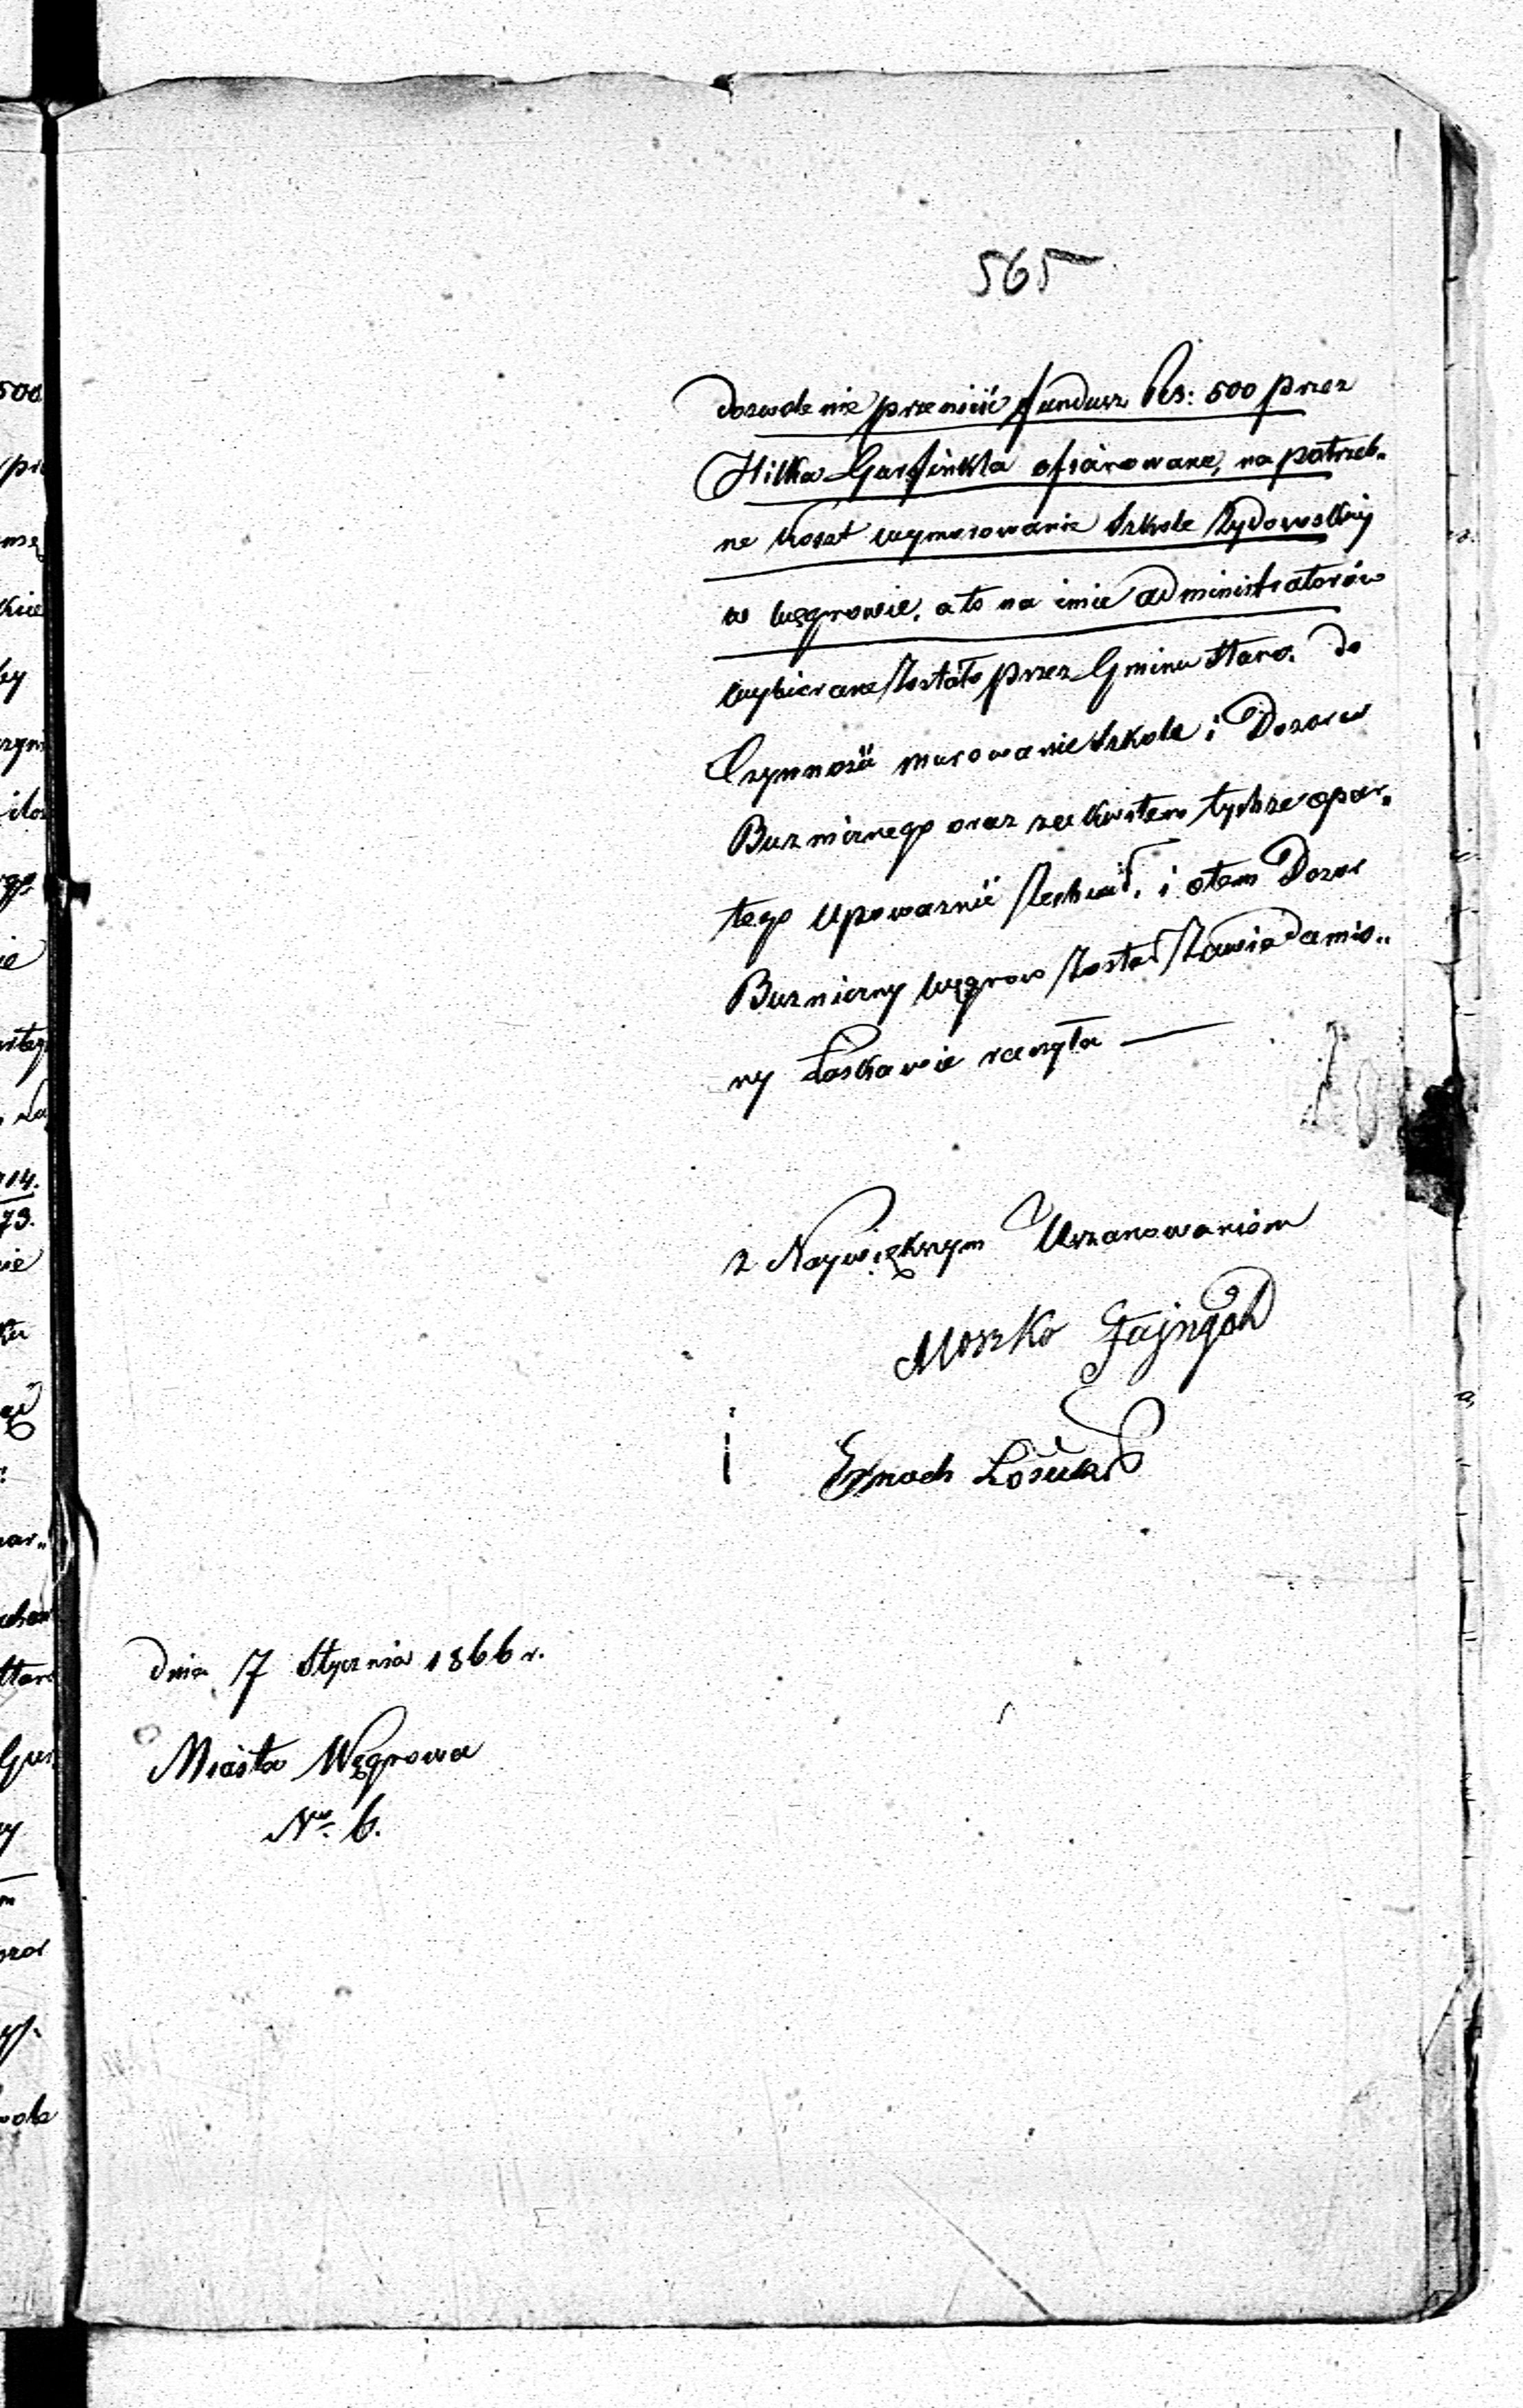 565
dozwolenie przenieść fundusz Rs: 500 przez
Hilka Garfinkla ofiarowane, na potrzeb„
ne koszt wymurowanie Szkole Żydowskiej
w Węgrowie, a to na imie administratorów
wybierane zostało przez Gminu Staro. do
Czynność murowanie Szkole i Dozoru
Buznicznego oraz tychże opar„
tego upoważnić i otem Dozor
Bużniczny Węgrow został zawiadamio„
ny Łaskawie raczyła —
z Naywiększym Uszanowaniem
Moszko Fajngold
i Enoch
Dnia 7 Stycznia 1866 r.
Miasta Węgrowa
No. 6.